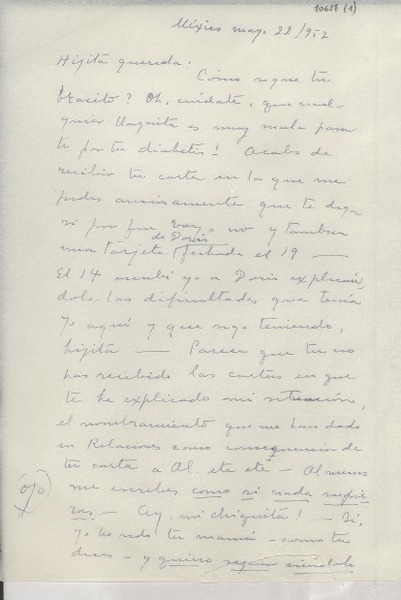 10657 (1)
México mayo 22/952
Hijita querida:
Cómo sigue tu
bracito? Oh, cuídate, que cual-
quier llaguita es muy mala para
ti por tu diabetis! Acabo de
recibir tu carta en la que me
pides ansiosamente que te diga
si por fin voy o no y tambien
una tarjeta de Doris fechada el 19 —
El 14 escribí yo a Doris explicán
dole las dificultades que tenía
yo aquí y que sigo teniendo,
hijita — Parece que tu no
has recibido las cartas en que
te he explicado mi situación,
el nombramiento que me han dado
en Relaciones como consequencia de
tu carta a Al. etc etc — Al menos
me escribes como si nada supie
ras — Ay, mi chiquita! — Si,
yo he sido tu mamá — como tu
dices — y quiero seguir siéndolo
ojo